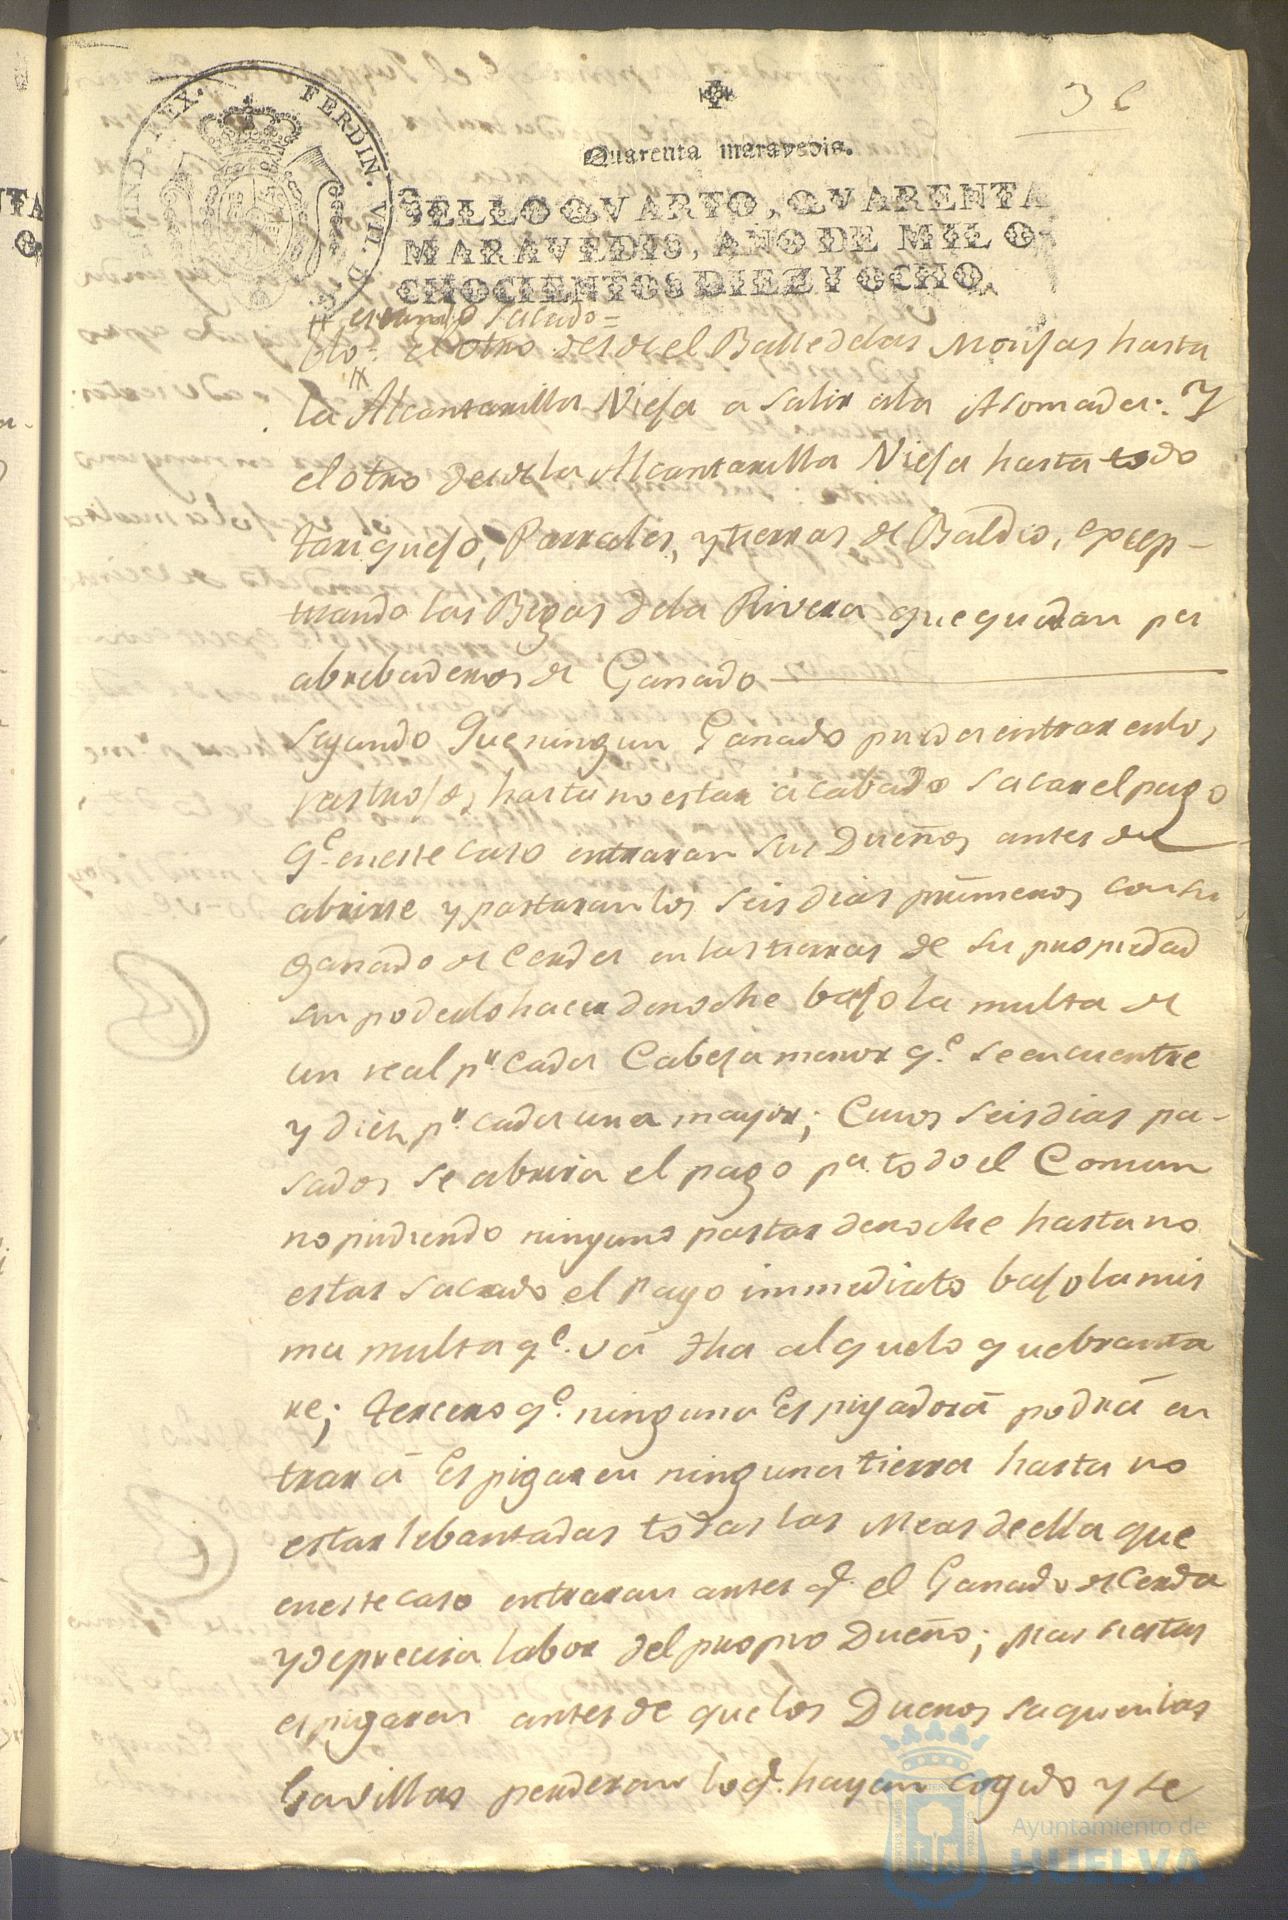 36
Quarenta maravedis.
HISPAN. ET IND. REX. FERDIN. VII. D. G.
SELLO QVARTO, QVARENTA
MARAVEDIS, AÑO DE MIL O
CHOCIENTOS DIEZ Y OCHO.
estando sacado=
oto= el otro desde el Balle de las Monjas hasta
la Alcantarilla Nieja a salir ala Asomada: Y
el otro desde la Alcantarilla Nieja hasta todo
Tariquejo, Parrales, y tierras de Baldio, excep-
tuando las Begas dela Rivera que quedan per
abrebaderos de Ganado
Segundo Que ningun Ganado pueda entrar en los
rastrojos, hasta no estar acabado sacar el pago
q.e en este caso entraran sus Dueños antes de
abrirse y pastaran los seis dias primeros con su
ganado de Cerda en las tierras de su propiedad
sin poderlo hacer de noche bajo la multa de
un real p.r cada Cabeja menor q.e se encuentre
y diez p.r cada una mayor; Cuios seis dias pa-
sados se abrira el pago pa. todo el Comun
no pudiendo ninguno pastar de noche hasta no
estar sacado el Pago immediato bajo la mis
ma multa q.e vá dha al que lo quebranta
re; tercero q.e ninguna Espigadora podrá en
trar á Espigar en ninguna tierra hasta no
estar lebantadas todas las Meas de ella que
en este caso entraran antes q.e el Ganado de Cerda
y de precisa labor del propio Dueño; Mas si estas
espigaren antes de que los Duenos saquen las
Gavillas perderan lo q.e hayan cogido y se
Ayuntamiento de
HUELVA